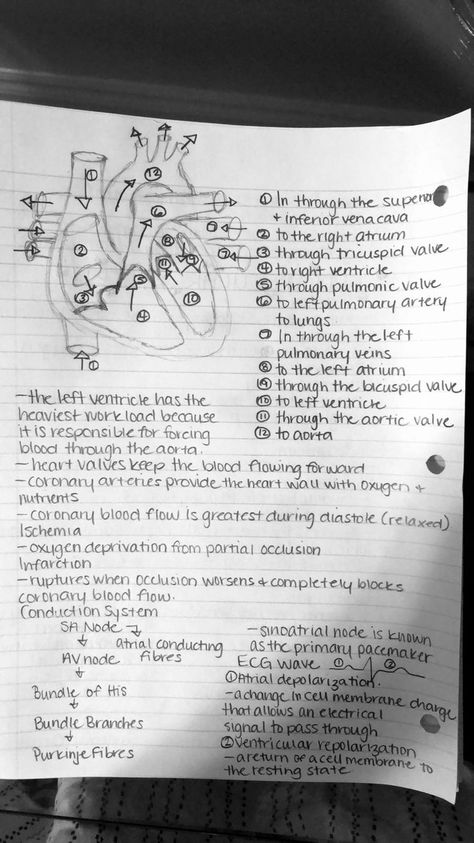 ① In through the superior
+ inferior vena cava
② to the right atrium
③ through tricuspid valve
④ to right ventricle
⑤ through pulmonic valve
⑥ to left pulmonary artery
to lungs
⑦ In through the left
pulmonary veins
⑧ to the left atrium
⑨ through the bicuspid valve
⑩ to left ventricle
⑪ through the aortic valve
⑫ to aorta
① ② ③ ④ ⑤ ⑥ ⑦ ⑦ ⑧ ⑨ ⑩ ⑪ ⑫ ①
-the left ventricle has the
heaviest workload because
it is responsible for forcing
blood through the aorta.
-heart valves keep the blood flowing forward
-coronary arteries provide the heart wall with oxygen +
nutrients
-coronary blood flow is greatest during diastole (relaxed)
Ischemia
-oxygen deprivation from partial occlusion
Infarction
-ruptures when occlusion worsens + completely blocks
coronary blood flow.
Conduction System
SA Node
atrial conducting
fibres
AV node
Bundle of His
Bundle Branches
Purkinje Fibres
-sinoatrial node is known
as the primary pacmaker
ECG WAVE ① ②
①Atrial depolarization.
-a change in cell membrane charge
that allows an electrical
signal to pass through
②Ventricular repolarization
-a return of a cell membrane to
the resting state